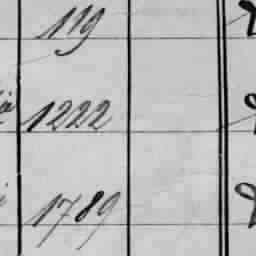 119
1222
1789